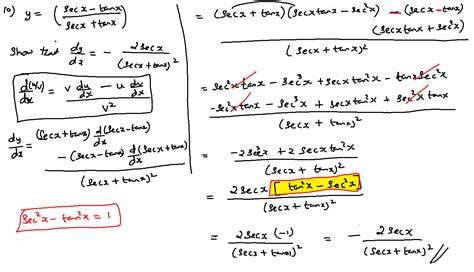 10) y = (secx - tanx / secx + tanx)
Show that dy/dx = - 2secx / (secx + tanx)²
d(u/v)/dx = v du/dx - u dv/dx / v²
dy/dx = (secx+tanx) d/dx (secx-tanx)
-(secx-tanx) d/dx (secx+tanx)
/ (secx + tanx)²
sec²x - tan²x = 1
= (secx + tanx)(secxtanx - sec²x) - (secx - tanx)
(secxtanx + sec²x)
/ (secx + tanx)²
= sec²xtanx - sec³x + secxtan²x - tanxsec²x
-sec²xtanx - sec³x + secxtan²x + sec²xtanx
/ (secx + tanx)²
= -2sec³x + 2secxtan²x / (secx + tanx)²
= 2secx [tan²x - sec²x] / (secx + tanx)²
= 2secx (-1) / (secx + tanx)² = - 2secx / (secx + tanx)² //